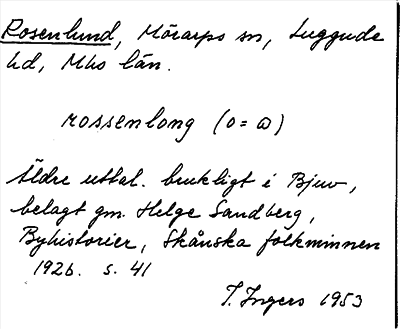 Rosenlund, Mörarps sn, Luggude
hd, Mhs län.
rossenlong (o = ω)
Äldre uttal. brukligt i Bjuv,
belagt gm. Helge Sandberg,
Byhistorier, Skånska folkminnen
1926. s. 41
I. Ingers 1953